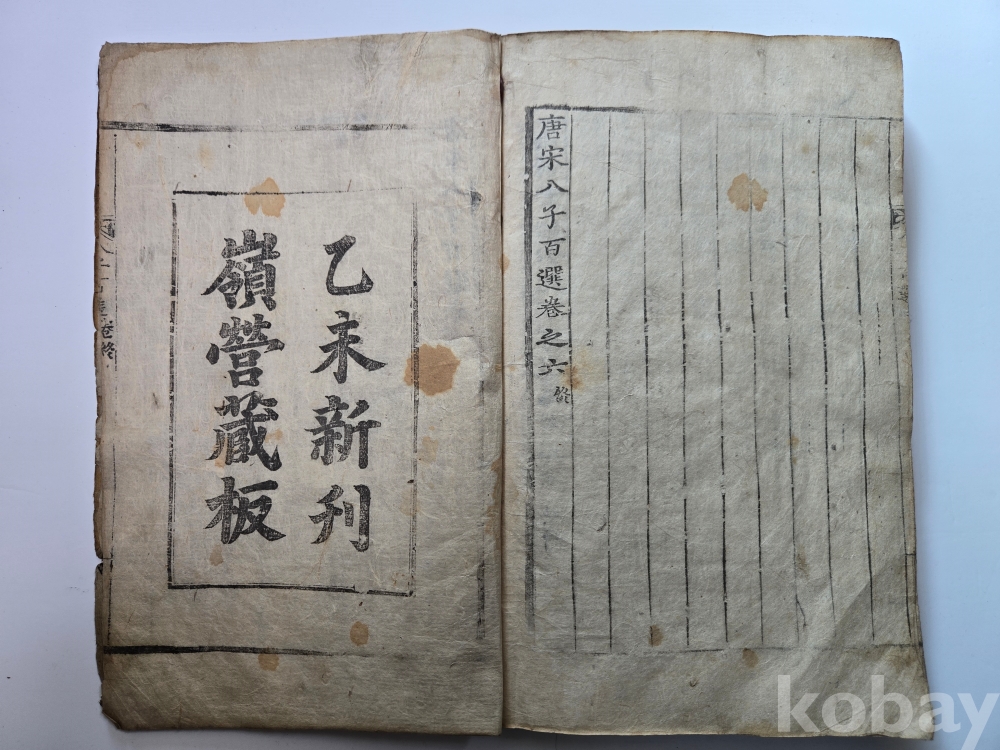 唐宋八子百選卷之六 終
乙未新刊
嶺營藏板
卷終
kobay